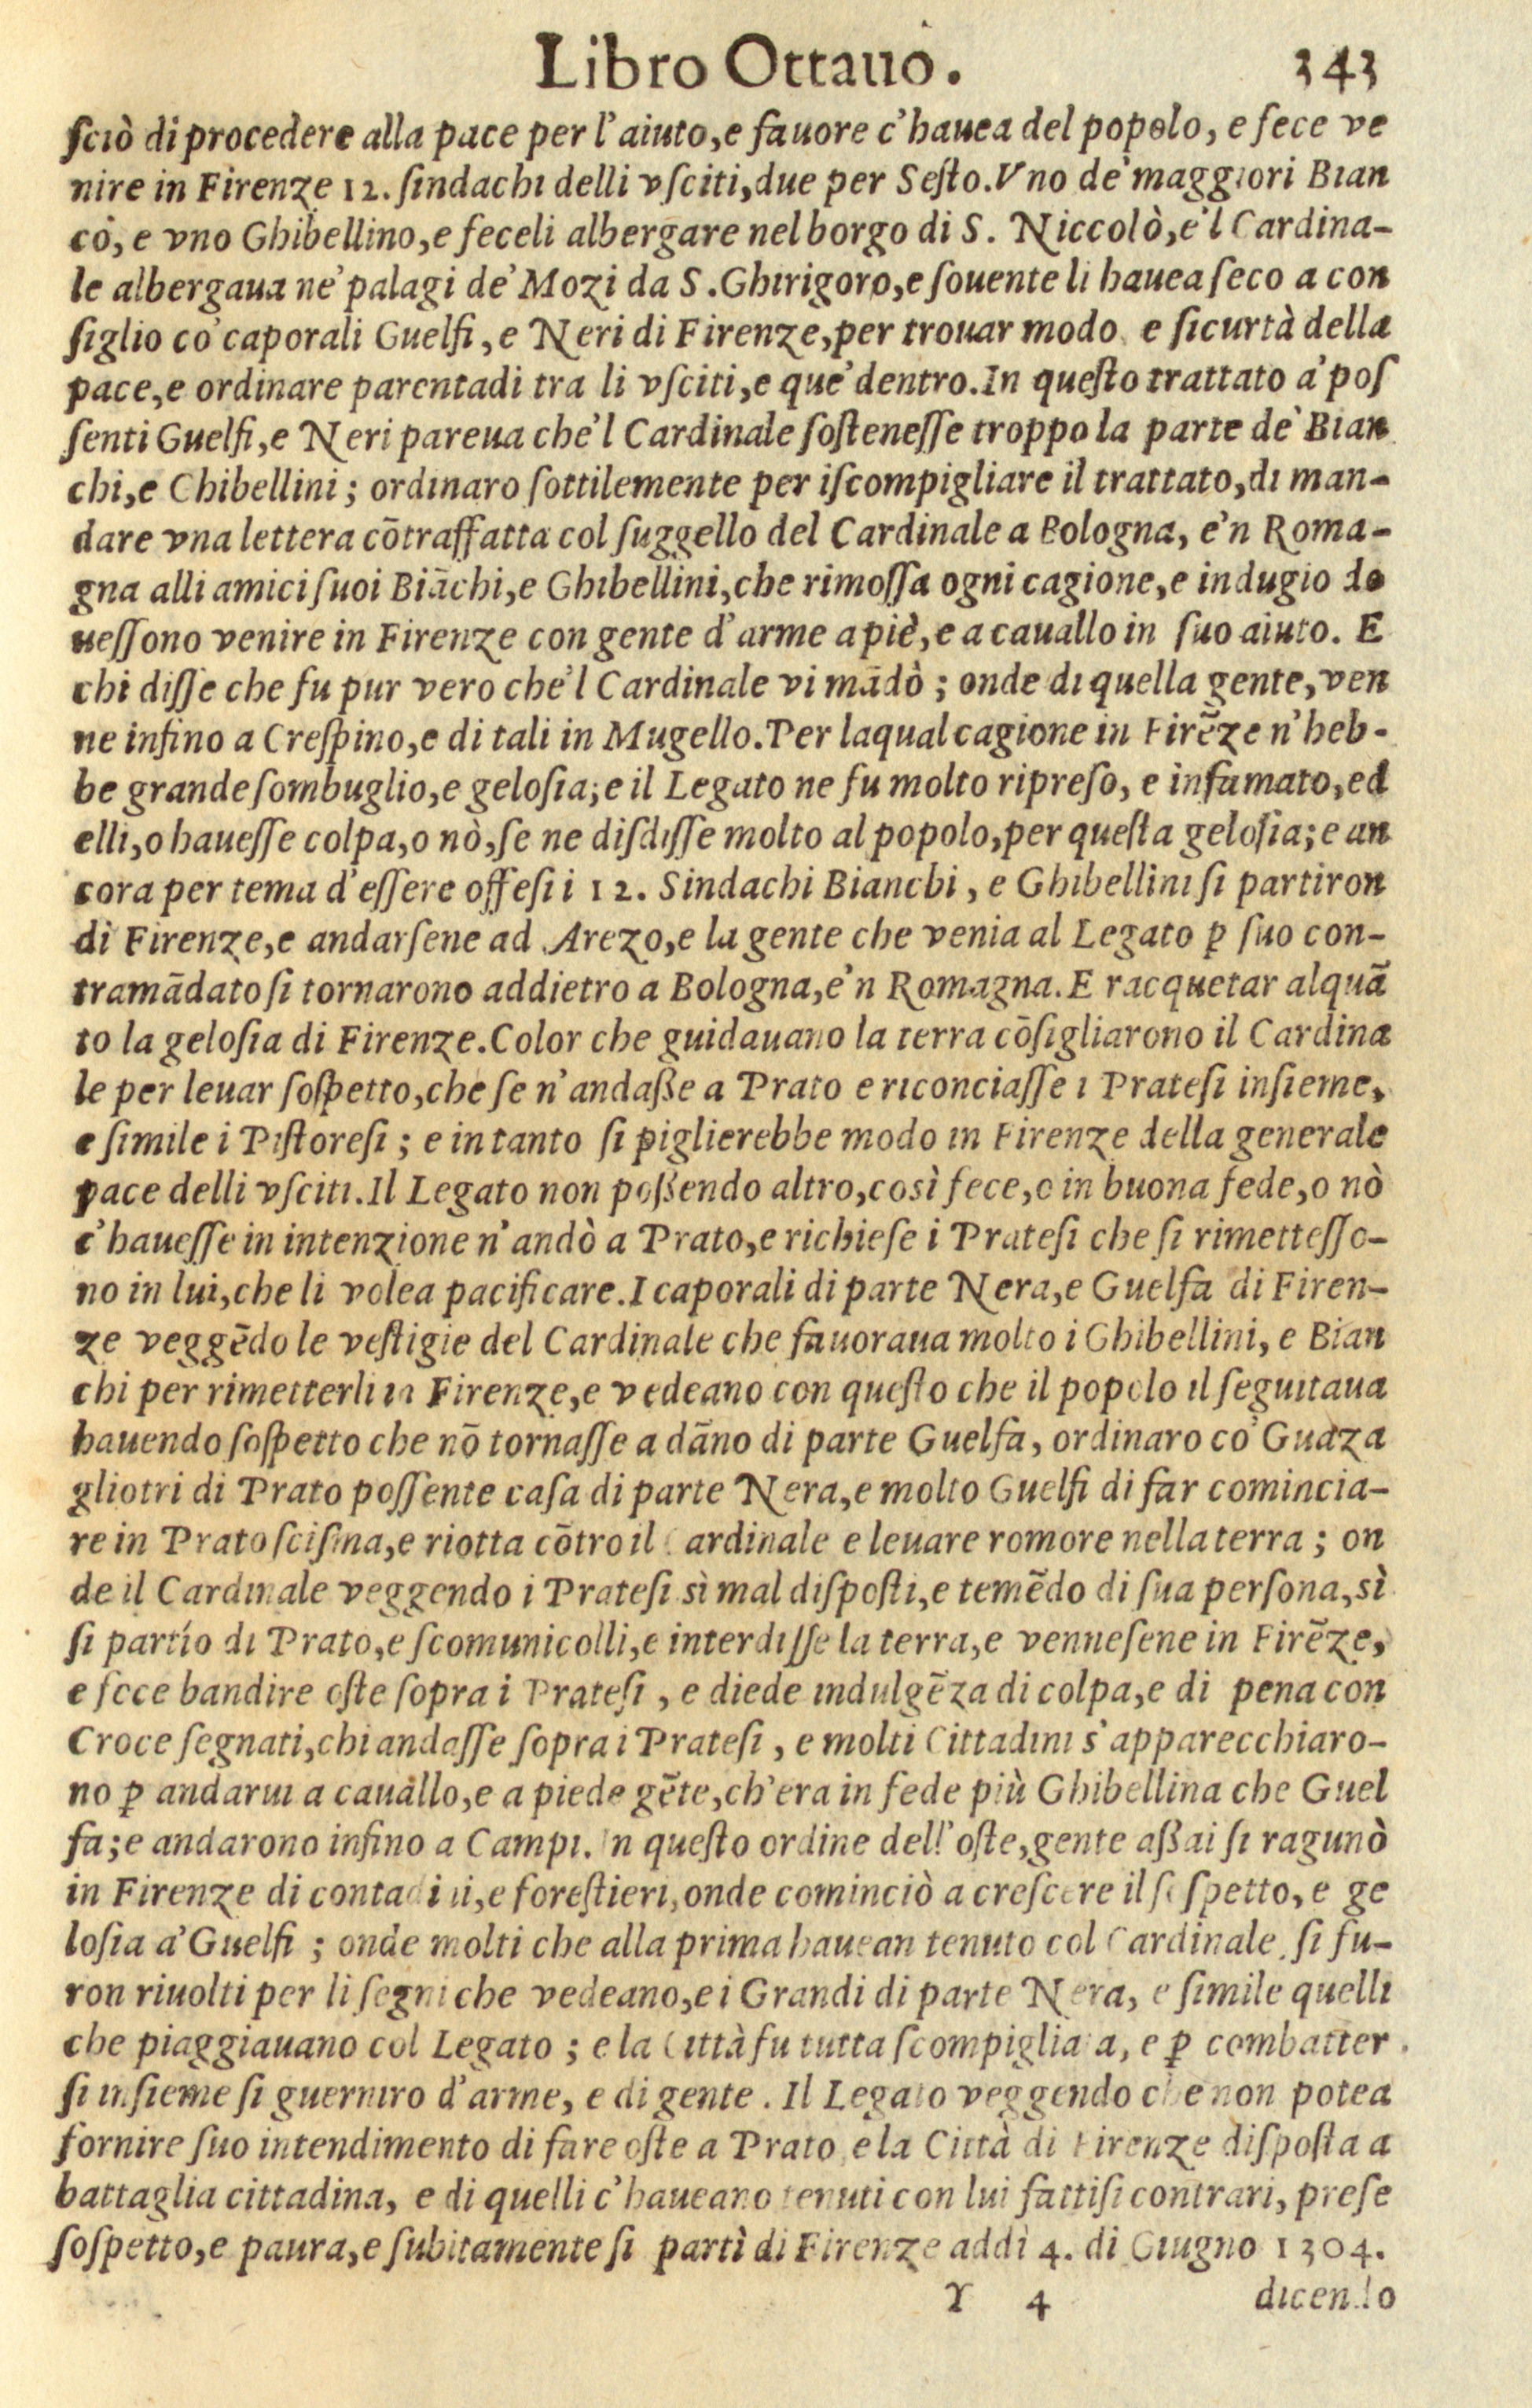 Libro Ottauo. 343
ſciò di procedere alla pace per l'aiuto,e fauore c'hauea del popolo, e fece ve
nire in Firenze 12. ſindachi delli vſciti,due per Seſto.Vno de' maggiori Bian
co, e vno Ghibellino,e feceli albergare nel borgo di S. Niccolò,e'l Cardina-
le albergaua ne' palagi de' Mozi da S.Ghirigoro,e ſouente li hauea ſeco a con
ſiglio co' caporali Guelfi, e Neri di Firenze,per trouar modo, e ſicurtà della
pace,e ordinare parentadi tra li vſciti,e que' dentro.In queſto trattato a' poſ
ſenti Guelfi,e Neri pareua che'l Cardinale ſoſteneſſe troppo la parte de' Bian
chi,e Chibellini; ordinaro ſottilemente per iſcompigliare il trattato,di man-
dare vna lettera cōtraffatta col ſuggello del Cardinale a Bologna, e'n Roma-
gna alli amici ſuoi Biāchi,e Ghibellini,che rimoſſa ogni cagione,e indugio do
ueſſono venire in Firenze con gente d'arme a piè,e a cauallo in ſuo aiuto. E
chi diſſe che fu pur vero che'l Cardinale vi mādò; onde di quella gente,ven
ne infino a Creſpino,e di tali in Mugello.Per laqual cagione in Firēze n'heb-
be grande ſombuglio,e geloſia;e il Legato ne fu molto ripreſo, e infamato,ed
elli,o haueſſe colpa,o nò,ſe ne diſdiſſe molto al popolo,per queſta geloſia;e an
cora per tema d'eſſere offeſi i 12. Sindachi Bianchi, e Ghibellini ſi partiron
di Firenze,e andarſene ad Arezo,e la gente che venia al Legato ꝑ ſuo con-
tramādato ſi tornarono addietro a Bologna,e'n Romagna.E racquetar alquā
to la geloſia di Firenze.Color che guidauano la terra cōſigliarono il Cardina
le per leuar ſoſpetto,che ſe n'andaße a Prato e riconciaſſe i Prateſi inſieme,
e ſimile i Piſtoreſi; e in tanto ſi piglierebbe modo in Firenze della generale
pace delli vſciti.Il Legato non poßendo altro,così fece,o in buona fede,o nò
c'haueſſe in intenzione n'andò a Prato,e richieſe i Prateſi che ſi rimetteſſo-
no in lui,che li volea pacificare.I caporali di parte Nera,e Guelfa di Firen-
ze veggēdo le veſtigie del Cardinale che fauoraua molto i Ghibellini, e Bian
chi per rimetterli in Firenze,e vedeano con queſto che il popolo il ſeguitaua
hauendo ſoſpetto che nō tornaſſe a dāno di parte Guelfa, ordinaro co' Guaza
gliotri di Prato poſſente caſa di parte Nera,e molto Guelfi di far comincia-
re in Prato ſciſma,e riotta cōtro il Cardinale e leuare romore nella terra; on
de il Cardinale veggendo i Prateſi sì mal diſpoſti,e temēdo di ſua perſona,sì
ſi partío di Prato,e ſcomunicolli,e interdiſſe la terra,e venneſene in Firēze,
e fece bandire oſte ſopra i Prateſi, e diede indulgēza di colpa,e di pena con
Croce ſegnati,chi andaſſe ſopra i Prateſi, e molti Cittadini s'apparecchiaro-
no ꝑ andarui a cauallo,e a piede gēte,ch'era in fede più Ghibellina che Guel
fa;e andarono infino a Campi. In queſto ordine dell'oſte,gente aßai ſi ragunò
in Firenze di contadini,e foreſtieri,onde cominciò a creſcere il ſoſpetto, e ge
loſia a' Guelfi; onde molti che alla prima hauean tenuto col Cardinale, ſi fu-
ron riuolti per li ſegni che vedeano,e i Grandi di parte Nera, e ſimile quelli
che piaggiauano col Legato; e la Città fu tutta ſcompigliata, e ꝑ combatter
ſi inſieme ſi guerniro d'arme, e di gente. Il Legato veggendo che non potea
fornire ſuo intendimento di fare oſte a Prato,e la Città di Firenze diſpoſta a
battaglia cittadina, e di quelli c'haueano tenuti con lui fattiſi contrari, preſe
ſoſpetto,e paura,e ſubitamente ſi partì di Firenze addì 4. di Giugno 1304.
Y 4 dicendo